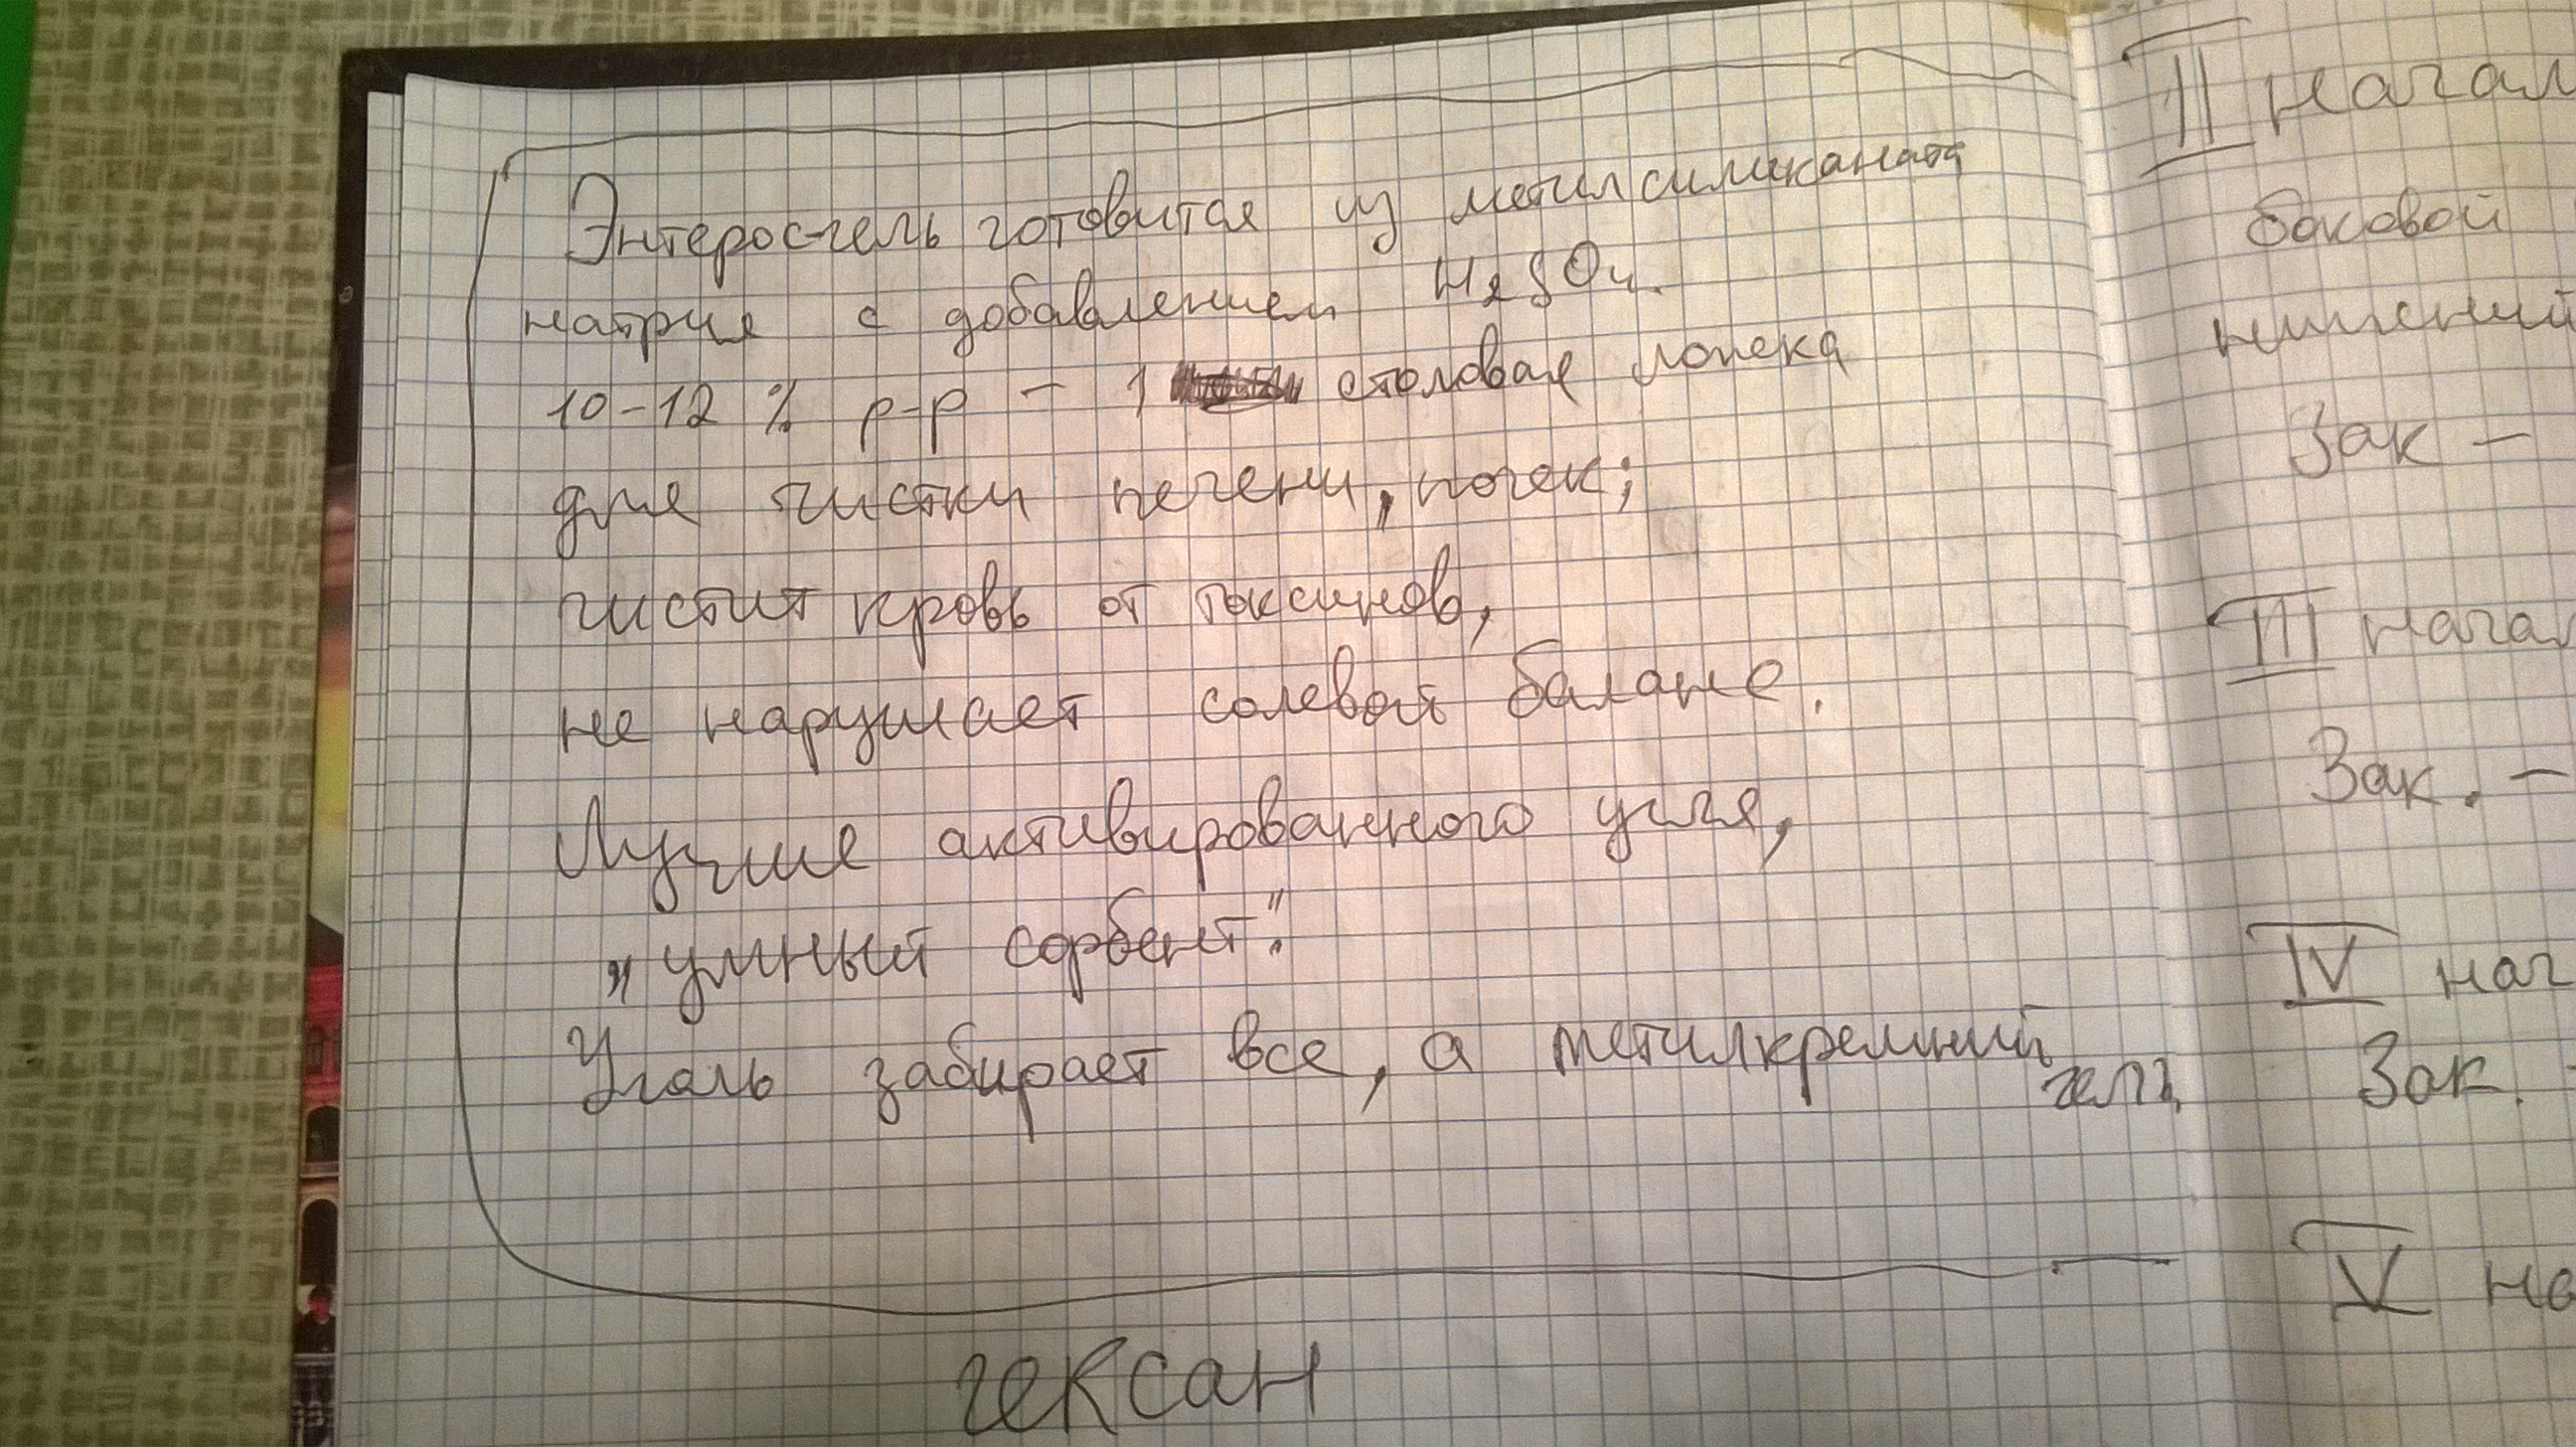 Энтеросгель готовится из метилсиликаната
натрия с добавлением H2SO4.
10-12 % р-р - 1 столовая ложка
для чистки печени, почек;
чистит кровь от токсинов,
не нарушает солевой баланс.
Лучше активированного угля,
„умный сорбент".
Уголь забирает все, а метилкремний
гель
гексан
II начал
боковой
нижний
Зак -
III начал
Зак. -
IV нач
Зак.
V на